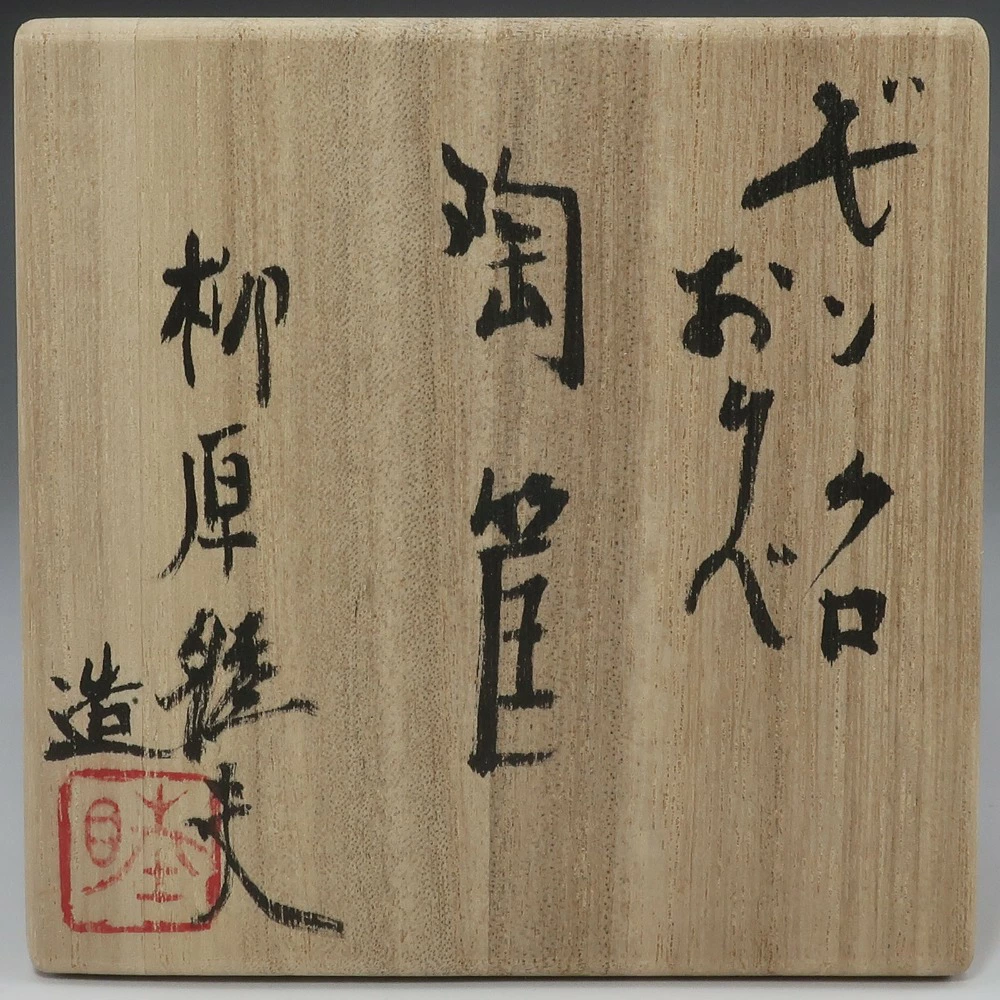 ギンクロ
おりべ
陶筐
柳原睦夫
造
睦